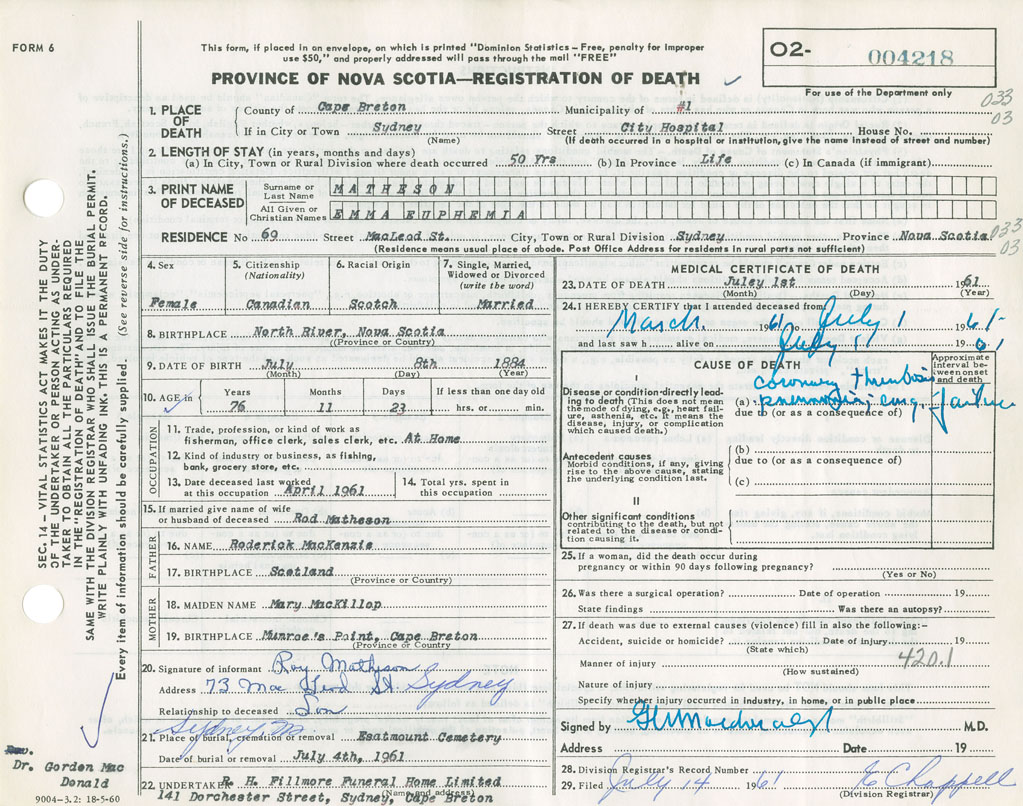 FORM 6
This form, if placed in an envelope, on which is printed "Dominion Statistics – Free, penalty for improper
use $50," and properly addressed will pass through the mail "FREE"
PROVINCE OF NOVA SCOTIA—REGISTRATION OF DEATH
O2- 004218
For use of the Department only
033
03
1. PLACE OF DEATH
County of Cape Breton Municipality of #1
If in City or Town Sydney Street City Hospital House No.
(Name) (If death occurred in a hospital or institution, give the name instead of street and number)
2. LENGTH OF STAY (in years, months and days)
(a) In City, Town or Rural Division where death occurred 50 Yrs (b) In Province Life (c) In Canada (if immigrant)
3. PRINT NAME OF DECEASED
Surname or Last Name MATHESON
All Given or Christian Names EMMA EUPHEMIA
RESIDENCE No 69 Street MacLeod St. City, Town or Rural Division Sydney Province Nova Scotia
033
03
(Residence means usual place of abode. Post Office Address for residents in rural parts not sufficient)
4. Sex
Female
5. Citizenship
(Nationality)
Canadian
6. Racial Origin
Scotch
7. Single, Married,
Widowed or Divorced
(write the word)
Married
8. BIRTHPLACE North River, Nova Scotia
(Province or Country)
9. DATE OF BIRTH July 8th 1884
(Month) (Day) (Year)
10. AGE in
Years Months Days If less than one day old
76 11 23 hrs. or min.
OCCUPATION
11. Trade, profession, or kind of work as
fisherman, office clerk, sales clerk, etc. At Home
12. Kind of industry or business, as fishing,
bank, grocery store, etc.
13. Date deceased last worked
at this occupation April 1961
14. Total yrs. spent in
this occupation
15. If married give name of wife
or husband of deceased Rod Matheson
FATHER
16. NAME Roderick MacKenzie
17. BIRTHPLACE Scotland
(Province or Country)
MOTHER
18. MAIDEN NAME Mary MacKillop
19. BIRTHPLACE Munroe's Point, Cape Breton
(Province or Country)
20. Signature of informant Roy Matheson
Address 73 Mac Leod St. Sydney
Relationship to deceased Son
Sydney,
21. Place of burial, cremation or removal Esatmount Cemetery
Date of burial or removal July 4th, 1961
22. UNDERTAKER R. H. Fillmore Funeral Home Limited
(Name and address)
141 Dorchester Street, Sydney, Cape Breton
MEDICAL CERTIFICATE OF DEATH
23. DATE OF DEATH Juley 1st 1961
(Month) (Day) (Year)
24. I HEREBY CERTIFY that I attended deceased from
March 1961 to July 1 1961
and last saw h alive on July 1 1961
CAUSE OF DEATH
Approximate
interval be-
tween onset
and death
I
Disease or condition directly lead-
ing to death (This does not mean
the mode of dying, e.g., heart fail-
ure, asthenia, etc. It means the
disease, injury, or complication
which caused death.)
(a) coronary thrombosis
failure
due to (or as a consequence of)
Antecedent causes
Morbid conditions, if any, giving
rise to the above cause, stating
the underlying condition last.
(b)
due to (or as a consequence of)
(c)
II
Other significant conditions
contributing to the death, but not
related to the disease or condi-
tion causing it.
25. If a woman, did the death occur during
pregnancy or within 90 days following pregnancy?
(Yes or No)
26. Was there a surgical operation? Date of operation 19
State findings Was there an autopsy?
27. If death was due to external causes (violence) fill in also the following:–
Accident, suicide or homicide? Date of injury 19
(State which)
420.1
Manner of injury
(How sustained)
Nature of injury
Specify whether injury occurred in industry, in home, or in public place
Signed by M.D.
Address Date 19
28. Division Registrar's Record Number
29. Filed July 14 1961 Chappell
(Division Registrar)
SEC. 14 – VITAL STATISTICS ACT MAKES IT THE DUTY
OF THE UNDERTAKER OR PERSON ACTING AS UNDER-
TAKER TO OBTAIN ALL THE PARTICULARS REQUIRED
IN THE "REGISTRATION OF DEATH" AND TO FILE THE
SAME WITH THE DIVISION REGISTRAR WHO SHALL ISSUE THE BURIAL PERMIT.
WRITE PLAINLY WITH UNFADING INK. THIS IS A PERMANENT RECORD.
Every item of information should be carefully supplied. (See reverse side for instructions.)
Dr. Gordon Mac
Donald
9004-3.2: 18-5-60